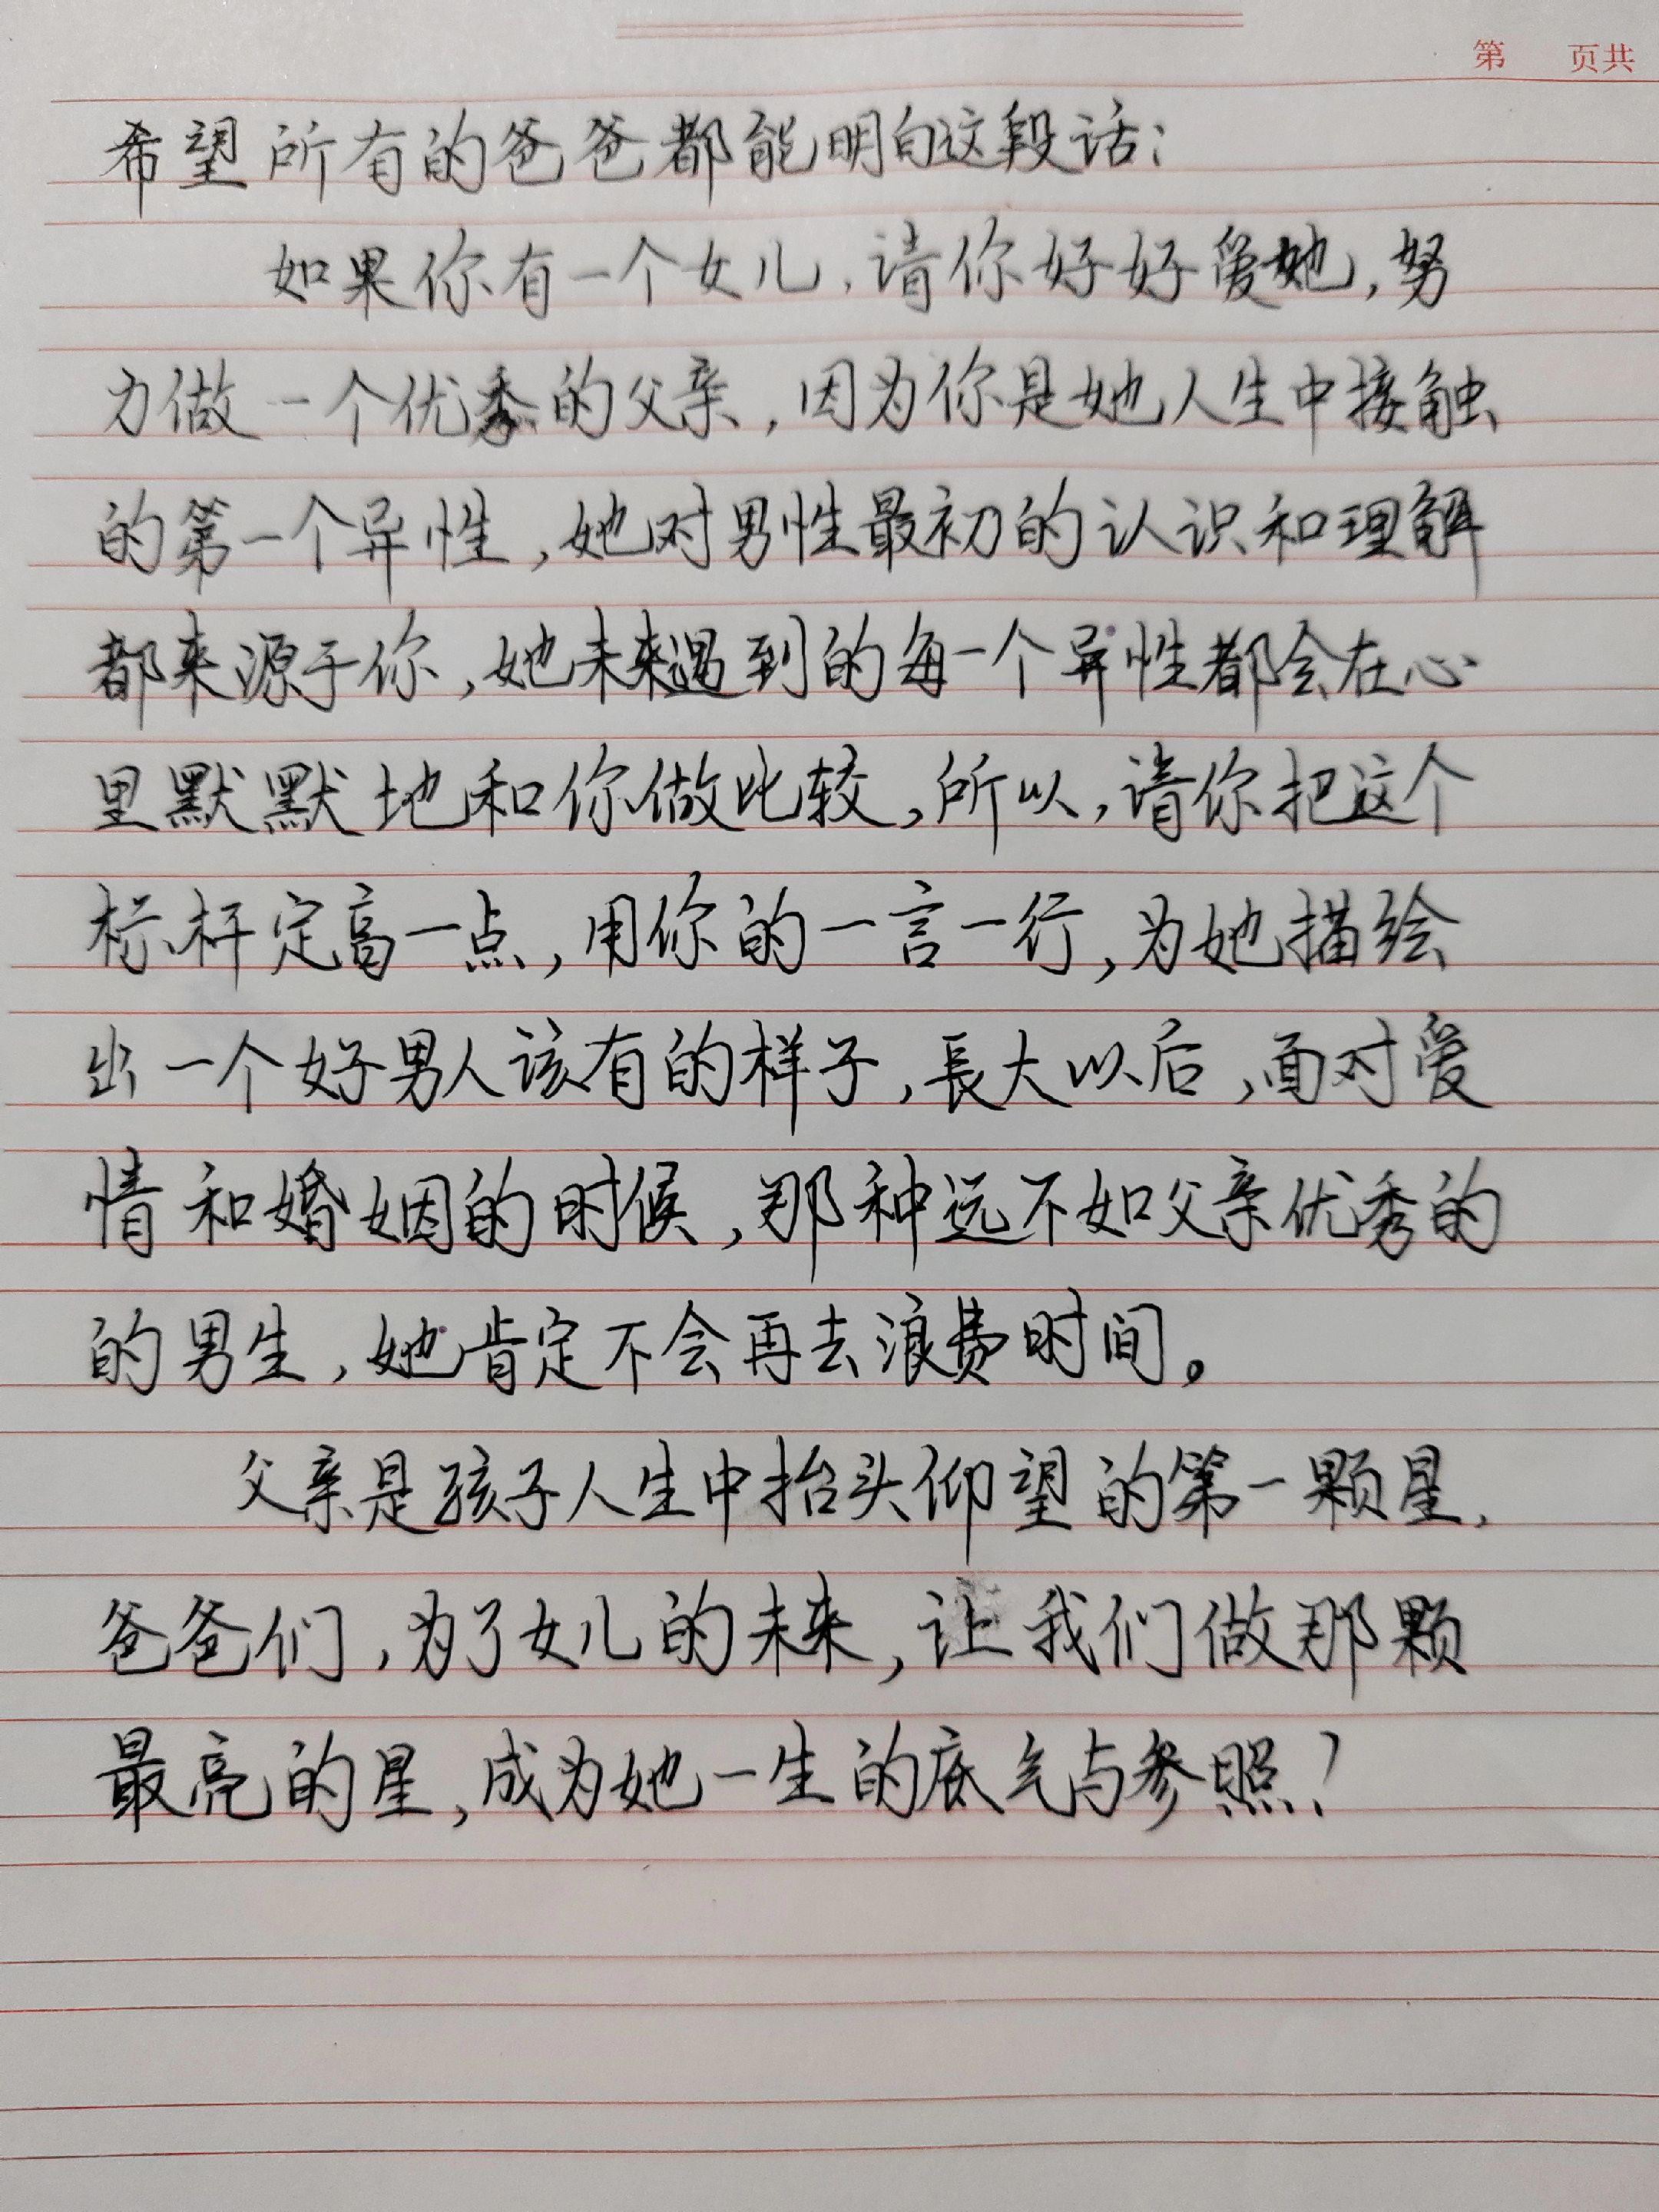 第 页共
希望所有的爸爸都能明白这段话：
如果你有一个女儿，请你好好爱她，努
力做一个优秀的父亲，因为你是她人生中接触
的第一个异性，她对男性最初的认识和理解
都来源于你，她未来遇到的每一个异性都会在心
里默默地和你做比较，所以，请你把这个
标杆定高一点，用你的一言一行，为她描绘
出一个好男人该有的样子，長大以后，面对爱
情和婚姻的时候，那种远不如父亲优秀的
的男生，她肯定不会再去浪费时间。
父亲是孩子人生中抬头仰望的第一颗星，
爸爸们，为了女儿的未来，让我们做那颗
最亮的星，成为她一生的底气与参照！